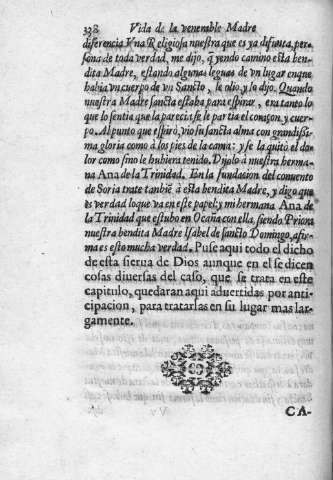 338 Vida de la venerable Madre
diferencia Vna Religiosa nuestra que es ya difunta, per-
sona de toda verdad, me dijo, q yendo camino esta ben-
dita Madre, estando algunas leguas de vn lugar en que
habia vn cuerpo de vn Sancto, le olio, y lo dijo. Quando
nuestra Madre sancta estaba para espirar, era tanto lo
que lo sentia que la parecia se le partia el coraçon, y cuer-
po. Al punto que espirò, vio su sancta alma con grandissi-
ma gloria como à los pies de la cama: y se la quitò el do-
lor como sino le hubiera tenido. Dijolo à nuestra herma-
na Ana de la Trinidad. En la fundacion del conuento
de Soria trate tambiē à esta bendita Madre, y digo que
es verdad lo que va en este papel: y mi hermana Ana de
la Trinidad que estubo en Ocaña con ella, siendo Priora
nuestra bendita Madre Isabel de sancto Domingo, afir-
ma es esto mucha verdad. Puse aqui todo el dicho
de esta sierua de Dios aunque en el se dicen
cosas diuersas del caso, que se trata en este
capitulo, quedaran aqui aduertidas por anti-
cipacion, para tratarlas en su lugar mas lar-
gamente.
CA-